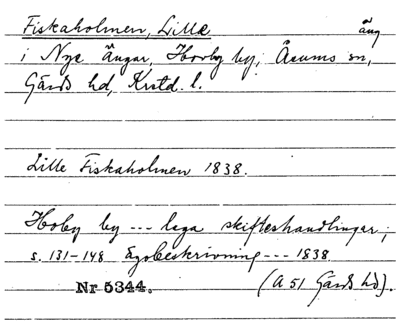 Fiskaholmen, Lille äng
i Nye Ängar, Hovby by, Åsums sn,
Gärds hd, Krstd. l.
Lille Fiskaholmen 1838.
Hoby by --- laga skifteshandlingar,
s. 131-148 Egobeskrivning --- 1838
Nr 5344. (A 51 Gärds hd).